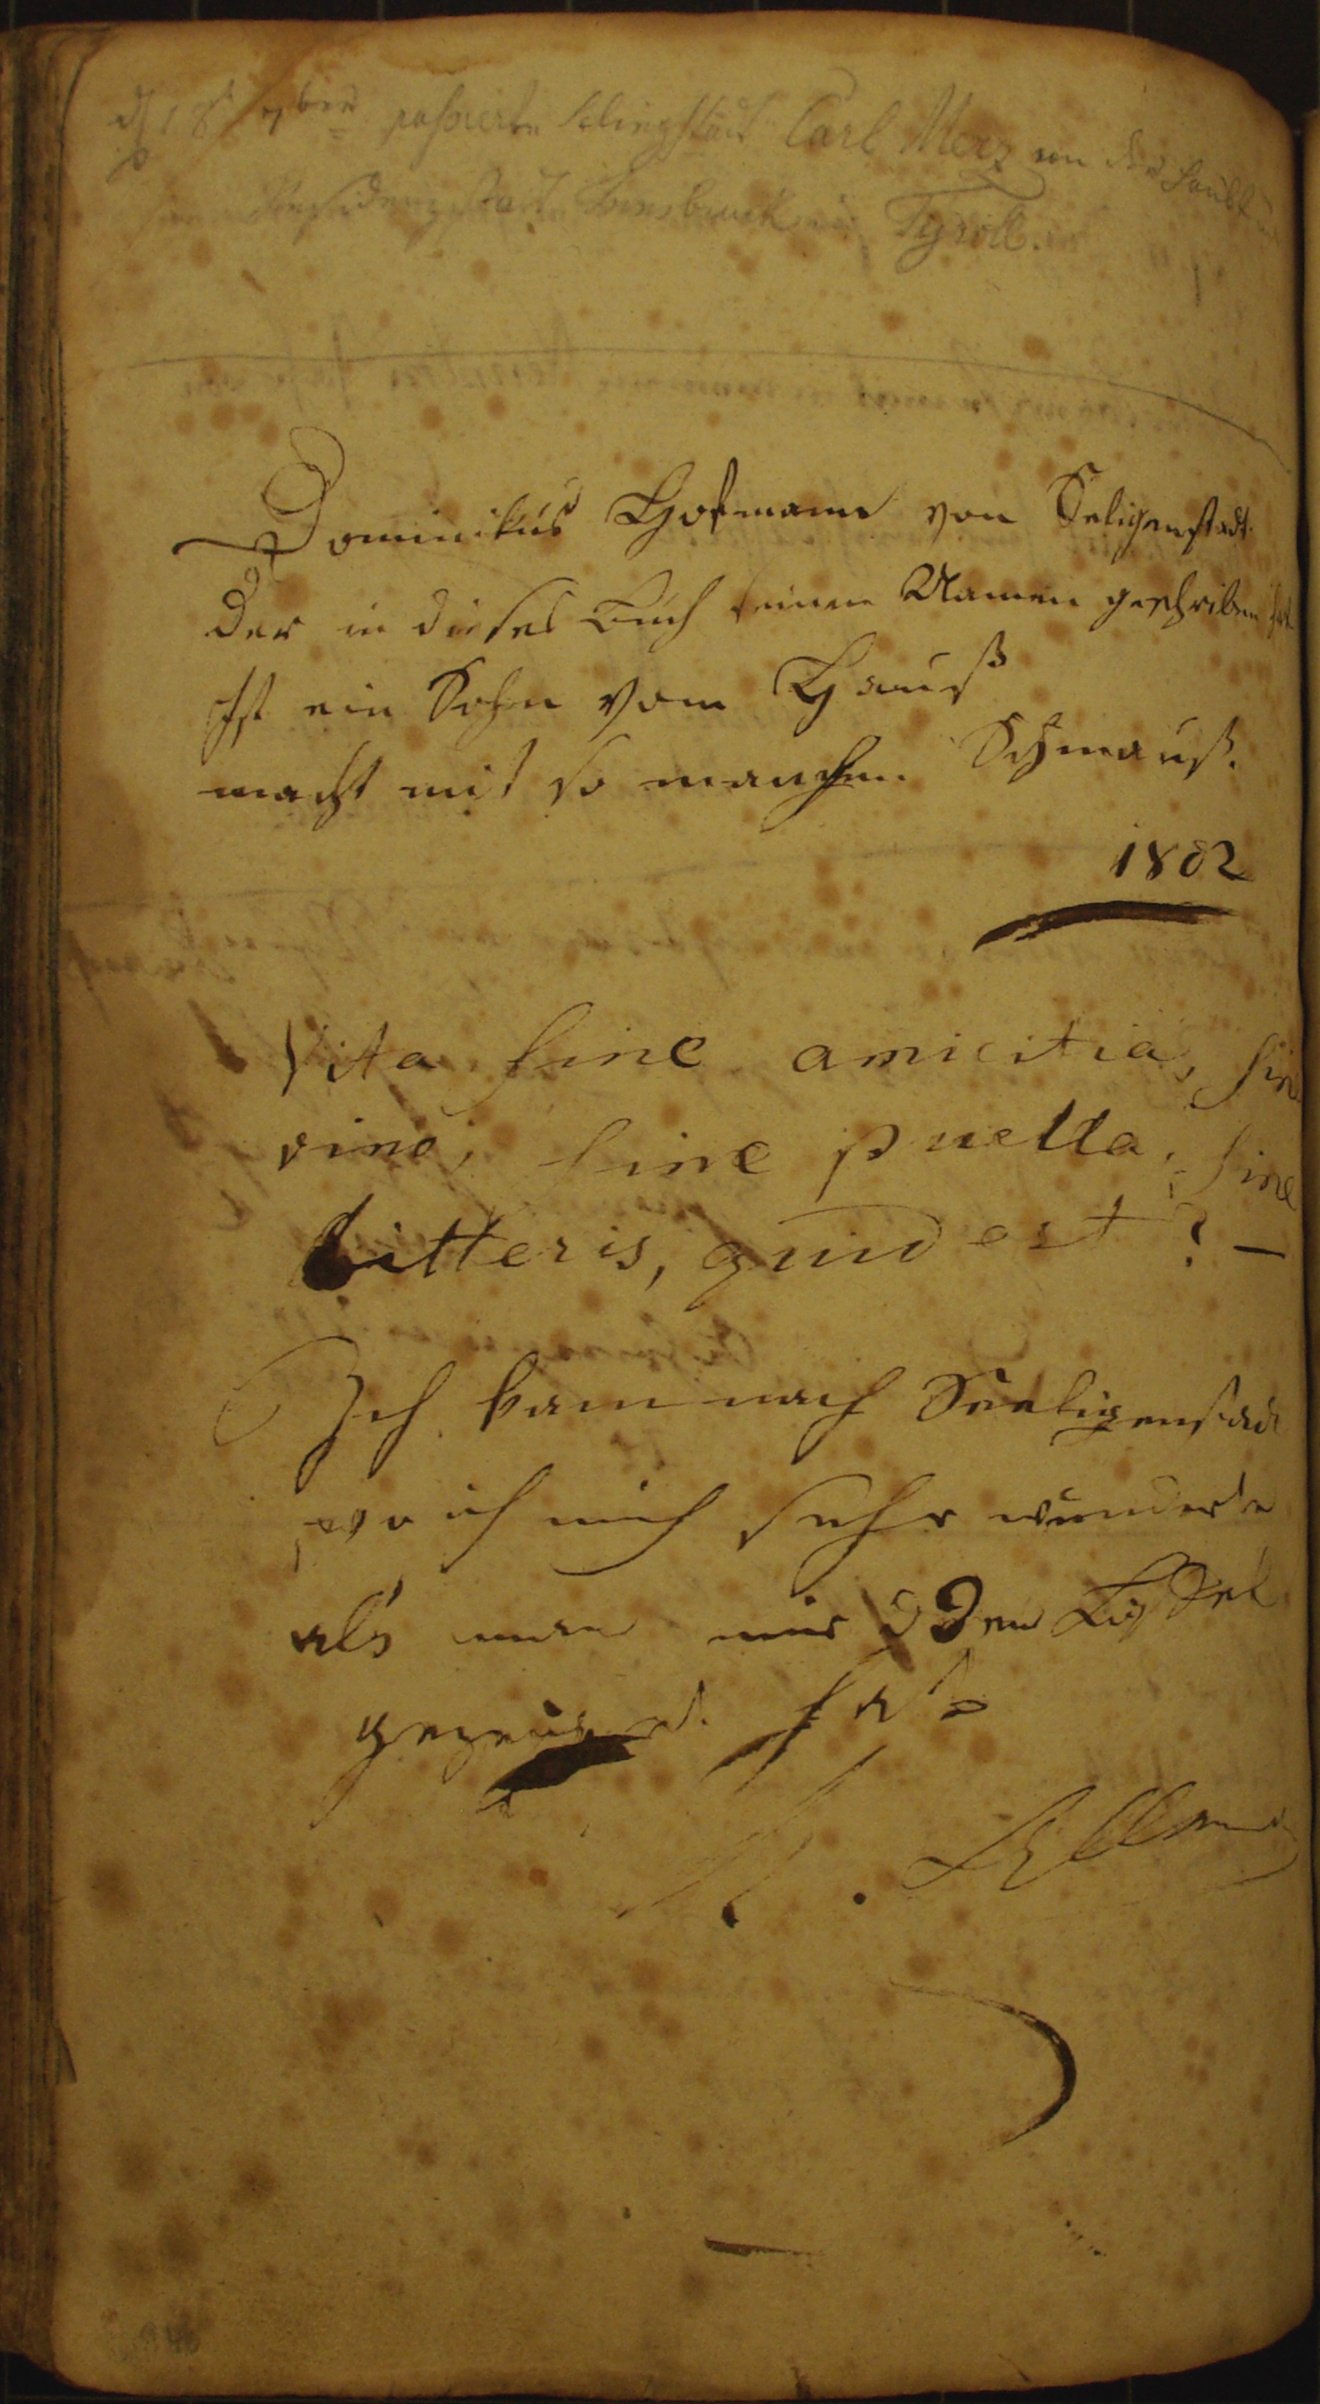 d 18t 7ber passierte Selingstadt Carl Merz von der Haubt
Residenzstadt Insbruck in Tyroll.
Dominikus Hofmann von Seligenstadt.
der in dieses Buch seinen Namen geschriben hat
Ist ein Sohn vom Hauß
macht mit so manchen Schmauß.
1802
Vita sine amicitia, sine
vino, sine puella, sine
Litteris, quid est? –
Ich kam nach Seeligenstadt
wo ich mich sehr wunderte
als man mir den Löffel
gezeugt hat